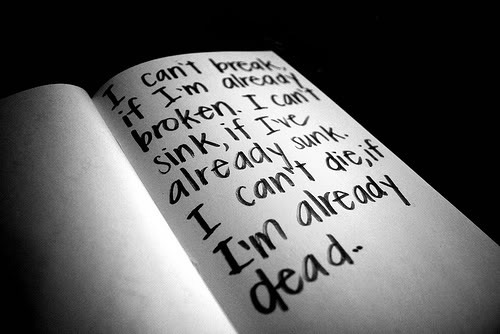 I can't break,
if I'm already
broken. I can't
sink, if I've
already sunk.
I can't die, if
I'm already
dead..